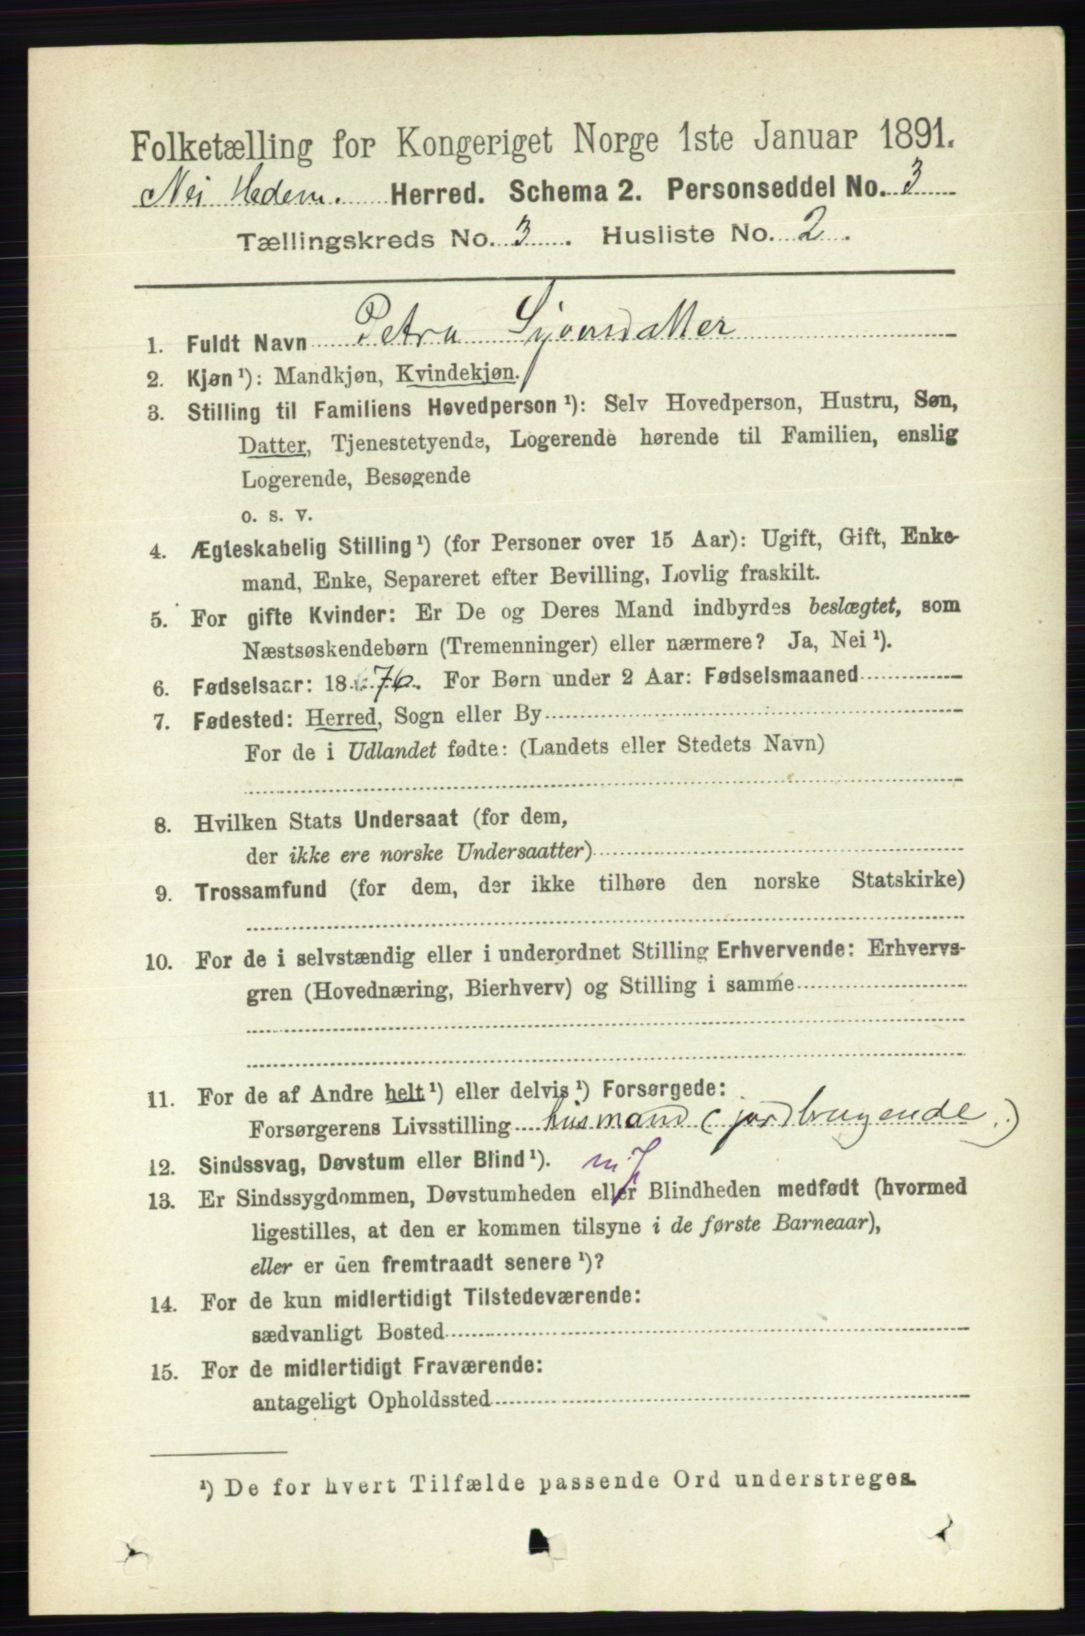 Folketælling for Kongeriget Norge 1ste Januar 1891.
Hedem. Herred. Schema 2. Personseddel No. 3
Tællingskreds No. 3. Husliste No. 2.
1. Fuldt Navn Petra
2. Kjøn ¹): Mandkjøn, Kvindekjøn.
3. Stilling til Familiens Hovedperson ¹): Selv Hovedperson, Hustru, Søn,
Datter, Tjenestetyende, Logerende hørende til Familien, enslig
Logerende, Besøgende
o. s. v.
4. Ægteskabelig Stilling ¹) (for Personer over 15 Aar): Ugift, Gift, Enke-
mand, Enke, Separeret efter Bevilling, Lovlig fraskilt.
5. For gifte Kvinder: Er De og Deres Mand indbyrdes beslægtet, som
Næstsøskendebørn (Tremenninger) eller nærmere? Ja, Nei ¹).
6. Fødselsaar: 18 76. For Børn under 2 Aar: Fødselsmaaned
7. Fødested: Herred, Sogn eller By
For de i Udlandet fødte: (Landets eller Stedets Navn)
8. Hvilken Stats Undersaat (for dem,
der ikke ere norske Undersaatter)
9. Trossamfund (for dem, der ikke tilhøre den norske Statskirke)
10. For de i selvstændig eller i underordnet Stilling Erhvervende: Erhvervs-
gren (Hovednæring, Bierhverv) og Stilling i samme
11. For de af Andre helt ¹) eller delvis ¹) Forsørgede:
Forsørgerens Livsstilling husmand (jordbrugende.)
12. Sindssvag, Døvstum eller Blind ¹).
13. Er Sindssygdommen, Døvstumheden eller Blindheden medfødt (hvormed
ligestilles, at den er kommen tilsyne i de første Barneaar),
eller er den fremtraadt senere ¹)?
14. For de kun midlertidigt Tilstedeværende:
sædvanligt Bosted
15. For de midlertidigt Fraværende:
antageligt Opholdssted
¹) De for hvert Tilfælde passende Ord understreges.